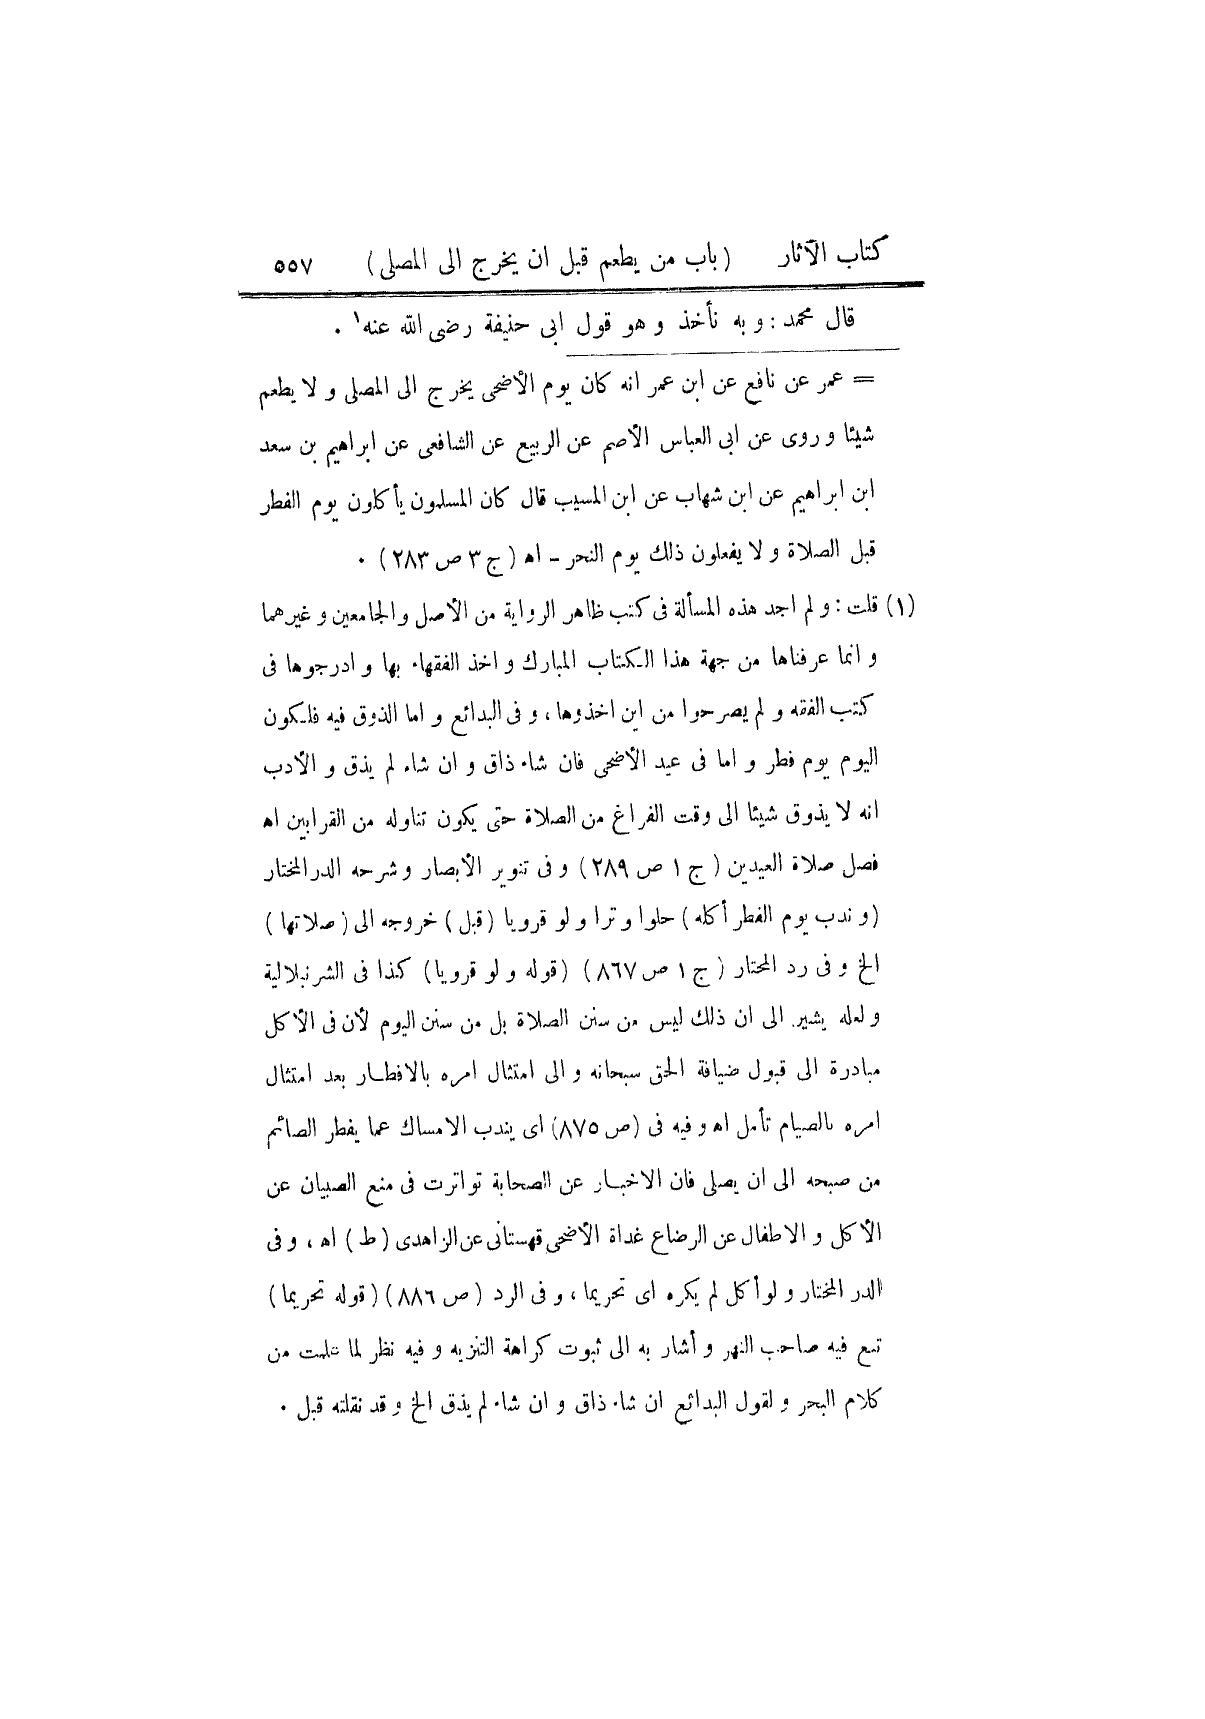 كتاب الآثار (باب من يطعم قبل ان يخرج الى المصلى) ٥٥٧
قال محمد: و به نأخذ و هو قول ابى حنيفة رضى الله عنه¹ .
= عمر عن نافع عن ابن عمر انه كان يوم الأضحى يخرج الى المصلى و لا يطعم
شيئا و روى عن ابى العباس الأصم عن الربيع عن الشافعى عن ابراهيم بن سعد
ابن ابراهيم عن ابن شهاب عن ابن المسيب قال كان المسلمون يأكلون يوم الفطر
قبل الصلاة و لا يفعلون ذلك يوم النحر – اه (ج ٣ ص ٢٨٣) .
(١) قلت: و لم اجد هذه المسألة فى كتب ظاهر الرواية من الأصل و الجامعين و غيرهما
و انما عرفناها من جهة هذا الكتاب المبارك و اخذ الفقهاء بها و ادرجوها فى
كتب الفقه و لم يصرحوا من اين اخذوها، و فى البدائع و اما الذوق فيه فلكون
اليوم يوم فطر و اما فى عيد الأضحى فان شاء ذاق و ان شاء لم يذق و الأدب
انه لا يذوق شيئا الى وقت الفراغ من الصلاة حتى يكون تناوله من القرابين اه
فصل صلاة العيدين (ج ١ ص ٢٨٩) و فى تنوير الأبصار و شرحه الدر المختار
(و ندب يوم الفطر أكله) حلوا و ترا و لو قرويا (قبل) خروجه الى (صلاتها)
الخ و فى رد المحتار (ج ١ ص ٨٦٧) (قوله و لو قرويا) كذا فى الشرنبلالية
و لعله يشير الى ان ذلك ليس من سنن الصلاة بل من سنن اليوم لأن فى الأكل
مبادرة الى قبول ضيافة الحق سبحانه و الى امتثال امره بالافطار بعد امتثال
امره بالصيام تأمل اه و فيه فى (ص ٨٧٥) اى يندب الامساك عما يفطر الصائم
من صبحه الى ان يصلى فان الاخبار عن الصحابة تواترت فى منع الصبيان عن
الأكل و الاطفال عن الرضاع غداة الأضحى قهستانى عن الزاهدى (ط) اه، و فى
الدر المختار و لو أكل لم يكره اى تحريما، و فى الرد (ص ٨٨٦) (قوله تحريما)
تبع فيه صاحب النهر و أشار به الى ثبوت كراهة التنزيه و فيه نظر لما علمت من
كلام البحر و لقول البدائع ان شاء ذاق و ان شاء لم يذق الخ و قد نقلته قبل .